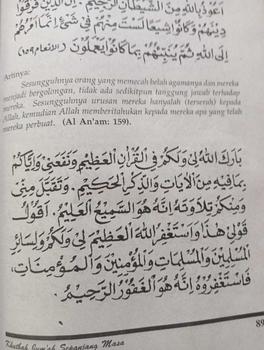 أَعُوْذُ بِاللّٰهِ مِنَ الشَّيْطَانِ الرَّجِيْمِ . إِنَّ الَّذِيْنَ فَرَّقُوْا
دِيْنَهُمْ وَكَانُوْا شِيَعًا لَسْتَ مِنْهُمْ فِيْ شَيْءٍ إِنَّمَا أَمْرُهُمْ
إِلَى اللّٰهِ ثُمَّ يُنَبِّئُهُمْ بِمَا كَانُوْا يَفْعَلُوْنَ (الانعام ١٥٩)
Artinya:
Sesungguhnya orang yang memecah belah agamanya dan mereka
menjadi bergolongan, tidak ada sedikitpun tanggung jawab terhadap
mereka. Sesungguhnya urusan mereka hanyalah (terserah) kepada
Allah, kemudian Allah memberitahukan kepada mereka apa yang telah
mereka perbuat. (Al An'am: 159).
بَارَكَ اللّٰهُ لِيْ وَلَكُمْ فِي الْقُرْآنِ الْعَظِيْمِ وَنَفَعَنِيْ وَإِيَّاكُمْ
بِمَا فِيْهِ مِنَ الْآيَاتِ وَالذِّكْرِ الْحَكِيْمِ . وَتَقَبَّلَ مِنِّيْ
وَمِنْكُمْ تِلَاوَتَهُ إِنَّهُ هُوَ السَّمِيْعُ الْعَلِيْمُ . أَقُوْلُ
قَوْلِيْ هٰذَا وَاسْتَغْفِرُ اللّٰهَ الْعَظِيْمَ لِيْ وَلَكُمْ وَلِسَائِرِ
الْمُسْلِمِيْنَ وَالْمُسْلِمَاتِ وَالْمُؤْمِنِيْنَ وَالْمُؤْمِنَاتِ،
فَاسْتَغْفِرُوْهُ إِنَّهُ هُوَ الْغَفُوْرُ الرَّحِيْمُ .
89
Khutbah Jum'ah Sepanjang Masa